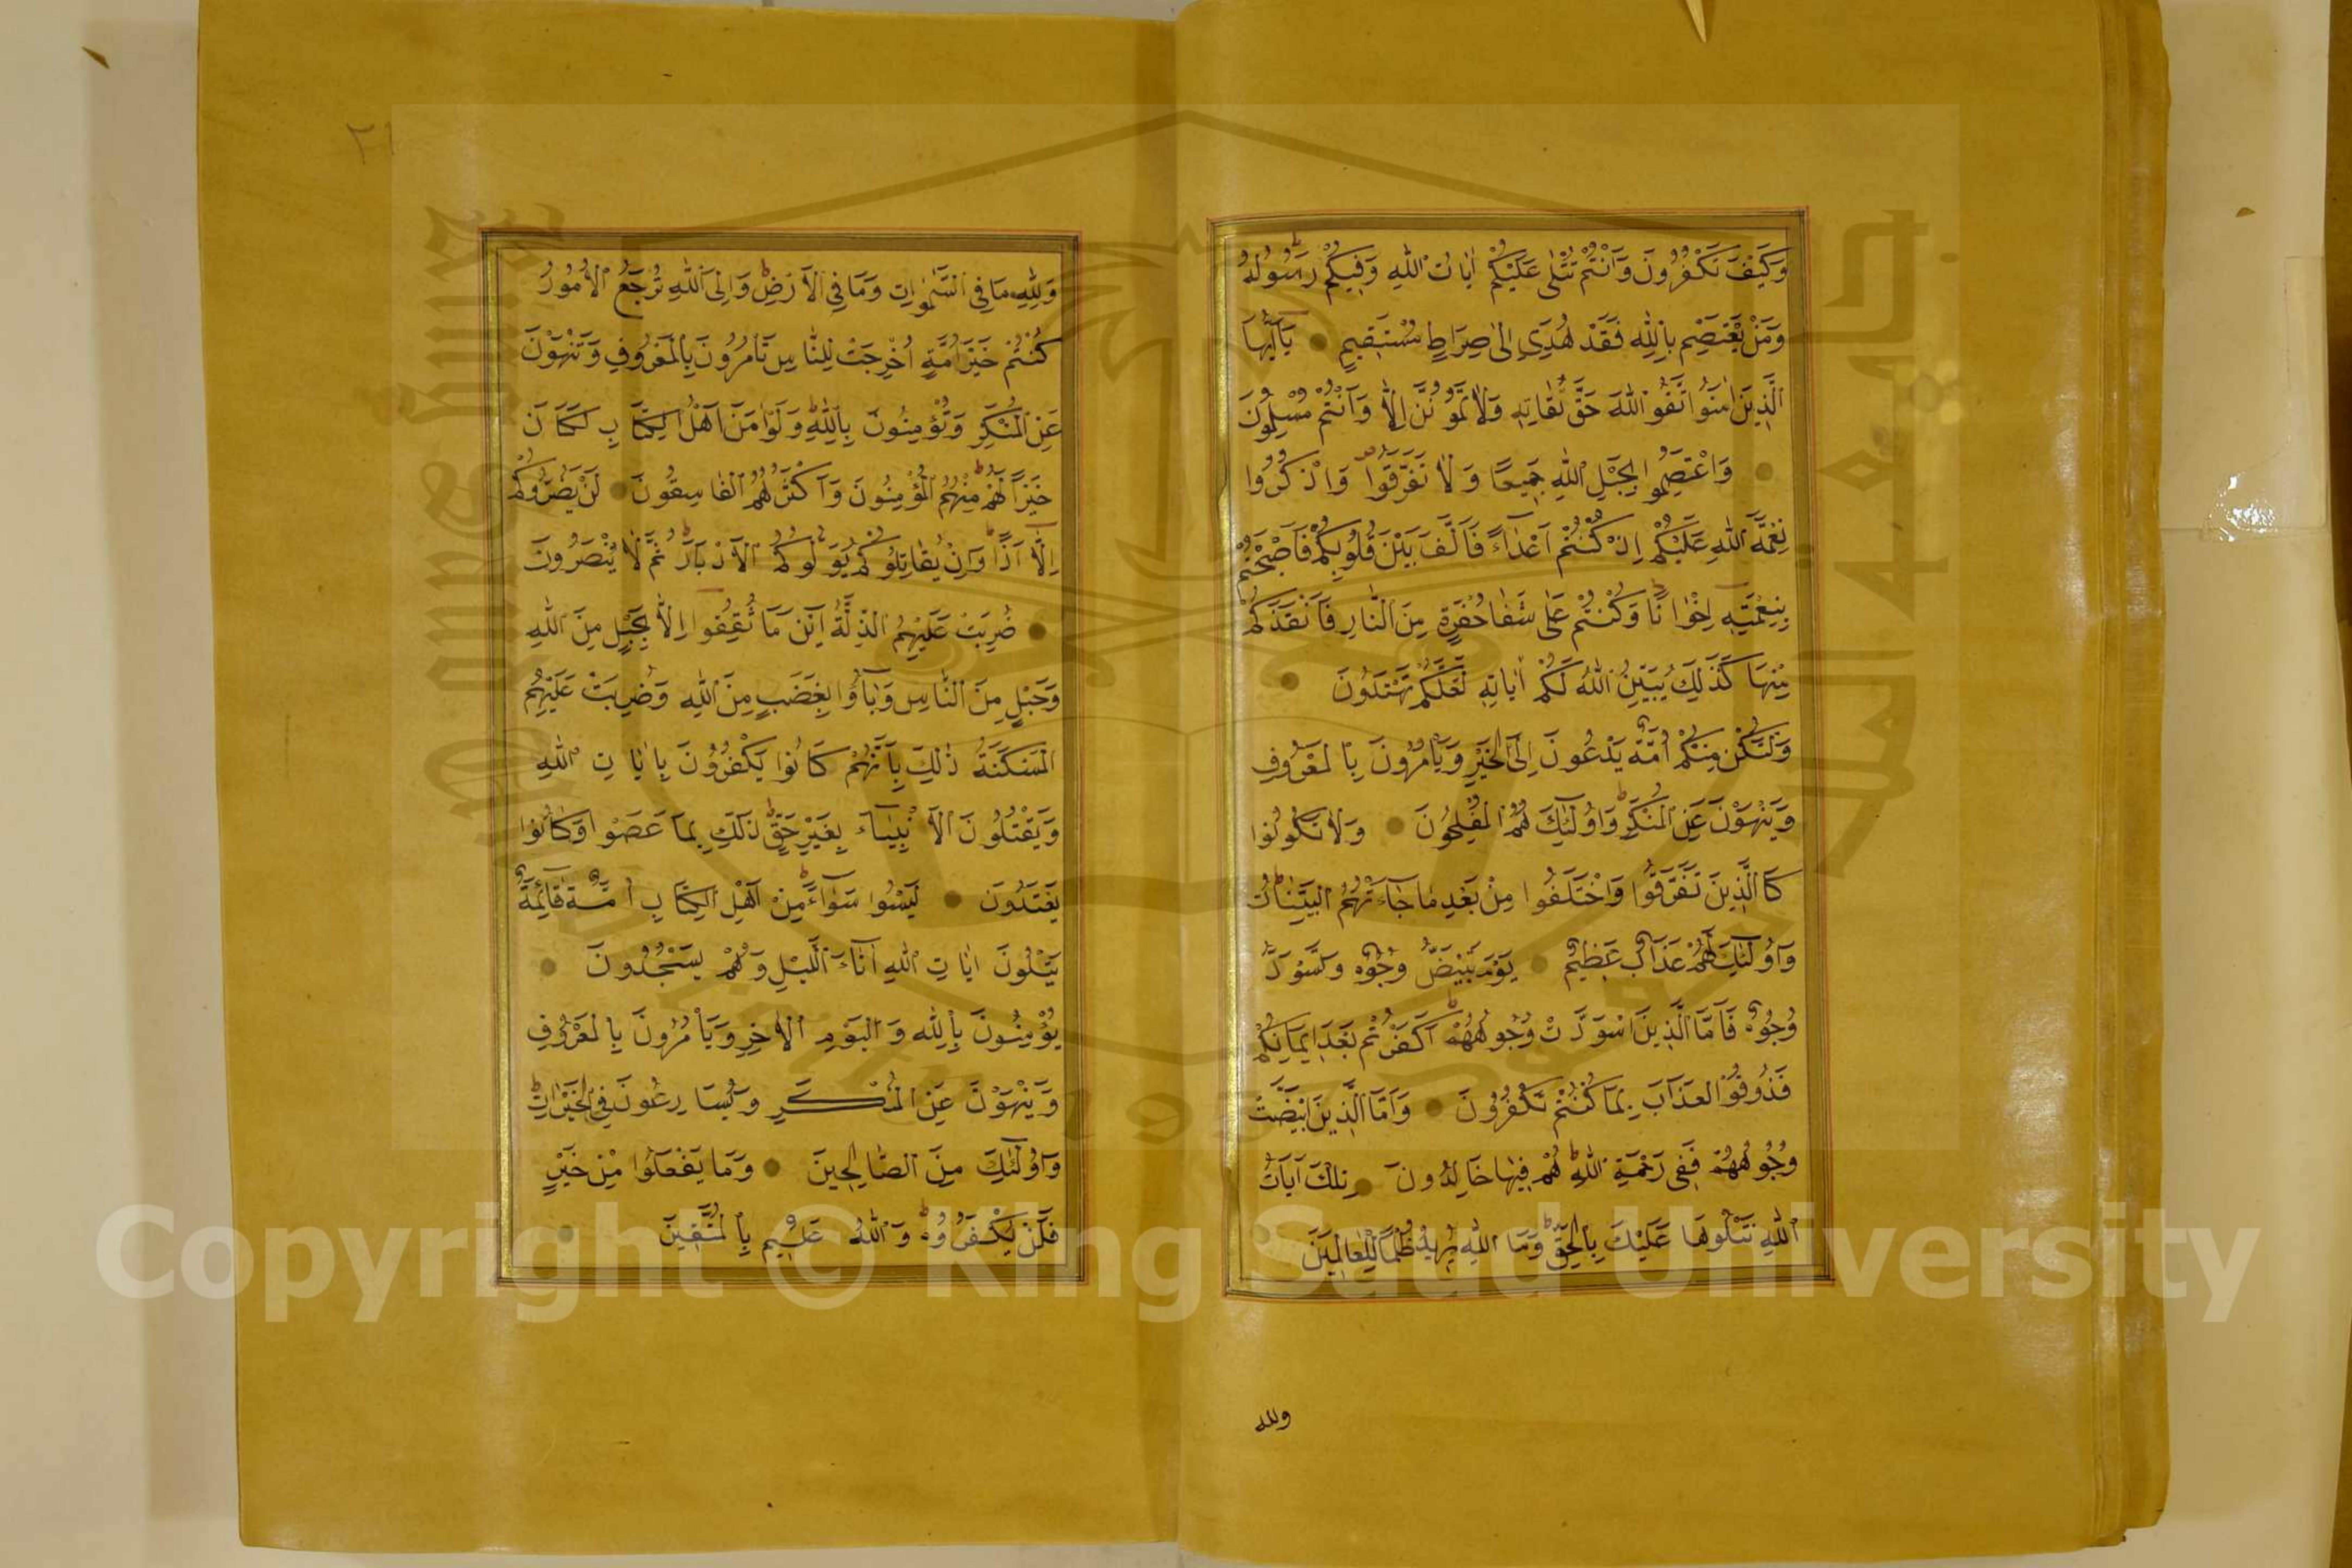 وَكَيْفَ تَكْفُرُونَ وَاَنْتُمْ تُتْلٰى عَلَيْكُمْ اٰيَاتُ اللّٰهِ وَفِيكُمْ رَسُولُهُ
وَمَنْ يَعْتَصِمْ بِاللّٰهِ فَقَدْ هُدِىَ اِلٰى صِرَاطٍ مُسْتَقِيمٍ يَآاَيُّهَا
الَّذِينَ اٰمَنُوا اتَّقُوا اللّٰهَ حَقَّ تُقَاتِهِ وَلَا تَمُوتُنَّ اِلَّا وَاَنْتُمْ مُسْلِمُونَ
وَاعْتَصِمُوا بِحَبْلِ اللّٰهِ جَمِيعًا وَلَا تَفَرَّقُوا وَاذْكُرُوا
نِعْمَةَ اللّٰهِ عَلَيْكُمْ اِذْ كُنْتُمْ اَعْدَاءً فَاَلَّفَ بَيْنَ قُلُوبِكُمْ فَاَصْبَحْتُمْ
بِنِعْمَتِهِ اِخْوَانًا وَكُنْتُمْ عَلٰى شَفَا حُفْرَةٍ مِنَ النَّارِ فَاَنْقَذَكُمْ
مِنْهَا كَذٰلِكَ يُبَيِّنُ اللّٰهُ لَكُمْ اٰيَاتِهِ لَعَلَّكُمْ تَهْتَدُونَ
وَلْتَكُنْ مِنْكُمْ اُمَّةٌ يَدْعُونَ اِلَى الْخَيْرِ وَيَأْمُرُونَ بِالْمَعْرُوفِ
وَيَنْهَوْنَ عَنِ الْمُنْكَرِ وَاُولٰئِكَ هُمُ الْمُفْلِحُونَ وَلَا تَكُونُوا
كَالَّذِينَ تَفَرَّقُوا وَاخْتَلَفُوا مِنْ بَعْدِ مَا جَاءَتْهُمُ الْبَيِّنَاتُ
وَاُولٰئِكَ لَهُمْ عَذَابٌ عَظِيمٌ يَوْمَ تَبْيَضُّ وُجُوهٌ وَتَسْوَدُّ
وُجُوهٌ فَاَمَّا الَّذِينَ اسْوَدَّتْ وُجُوهُهُمْ اَكَفَرْتُمْ بَعْدَ اِيمَانِكُمْ
فَذُوقُوا الْعَذَابَ بِمَا كُنْتُمْ تَكْفُرُونَ وَاَمَّا الَّذِينَ ابْيَضَّتْ
وُجُوهُهُمْ فَفِى رَحْمَةِ اللّٰهِ هُمْ فِيهَا خَالِدُونَ تِلْكَ اٰيَاتُ
اللّٰهِ نَتْلُوهَا عَلَيْكَ بِالْحَقِّ وَمَا اللّٰهُ يُرِيدُ ظُلْمًا لِلْعَالَمِينَ
ولله
٢١
وَلِلّٰهِ مَا فِى السَّمٰوَاتِ وَمَا فِى الْاَرْضِ وَاِلَى اللّٰهِ تُرْجَعُ الْاُمُورُ
كُنْتُمْ خَيْرَ اُمَّةٍ اُخْرِجَتْ لِلنَّاسِ تَأْمُرُونَ بِالْمَعْرُوفِ وَتَنْهَوْنَ
عَنِ الْمُنْكَرِ وَتُؤْمِنُونَ بِاللّٰهِ وَلَوْ اٰمَنَ اَهْلُ الْكِتَابِ لَكَانَ
خَيْرًا لَهُمْ مِنْهُمُ الْمُؤْمِنُونَ وَاَكْثَرُهُمُ الْفَاسِقُونَ لَنْ يَضُرُّوكُمْ
اِلَّا اَذًى وَاِنْ يُقَاتِلُوكُمْ يُوَلُّوكُمُ الْاَدْبَارَ ثُمَّ لَا يُنْصَرُونَ
ضُرِبَتْ عَلَيْهِمُ الذِّلَّةُ اَيْنَ مَا ثُقِفُوا اِلَّا بِحَبْلٍ مِنَ اللّٰهِ
وَحَبْلٍ مِنَ النَّاسِ وَبَاؤُا بِغَضَبٍ مِنَ اللّٰهِ وَضُرِبَتْ عَلَيْهِمُ
الْمَسْكَنَةُ ذٰلِكَ بِاَنَّهُمْ كَانُوا يَكْفُرُونَ بِاٰيَاتِ اللّٰهِ
وَيَقْتُلُونَ الْاَنْبِيَاءَ بِغَيْرِ حَقٍّ ذٰلِكَ بِمَا عَصَوْا وَكَانُوا
يَعْتَدُونَ لَيْسُوا سَوَاءً مِنْ اَهْلِ الْكِتَابِ اُمَّةٌ قَائِمَةٌ
يَتْلُونَ اٰيَاتِ اللّٰهِ اٰنَاءَ اللَّيْلِ وَهُمْ يَسْجُدُونَ
يُؤْمِنُونَ بِاللّٰهِ وَالْيَوْمِ الْاٰخِرِ وَيَأْمُرُونَ بِالْمَعْرُوفِ
وَيَنْهَوْنَ عَنِ الْمُنْكَرِ وَيُسَارِعُونَ فِى الْخَيْرَاتِ
وَاُولٰئِكَ مِنَ الصَّالِحِينَ وَمَا يَفْعَلُوا مِنْ خَيْرٍ
فَلَنْ يُكْفَرُوهُ وَاللّٰهُ عَلِيمٌ بِالْمُتَّقِينَ
Copyright © King Saud University